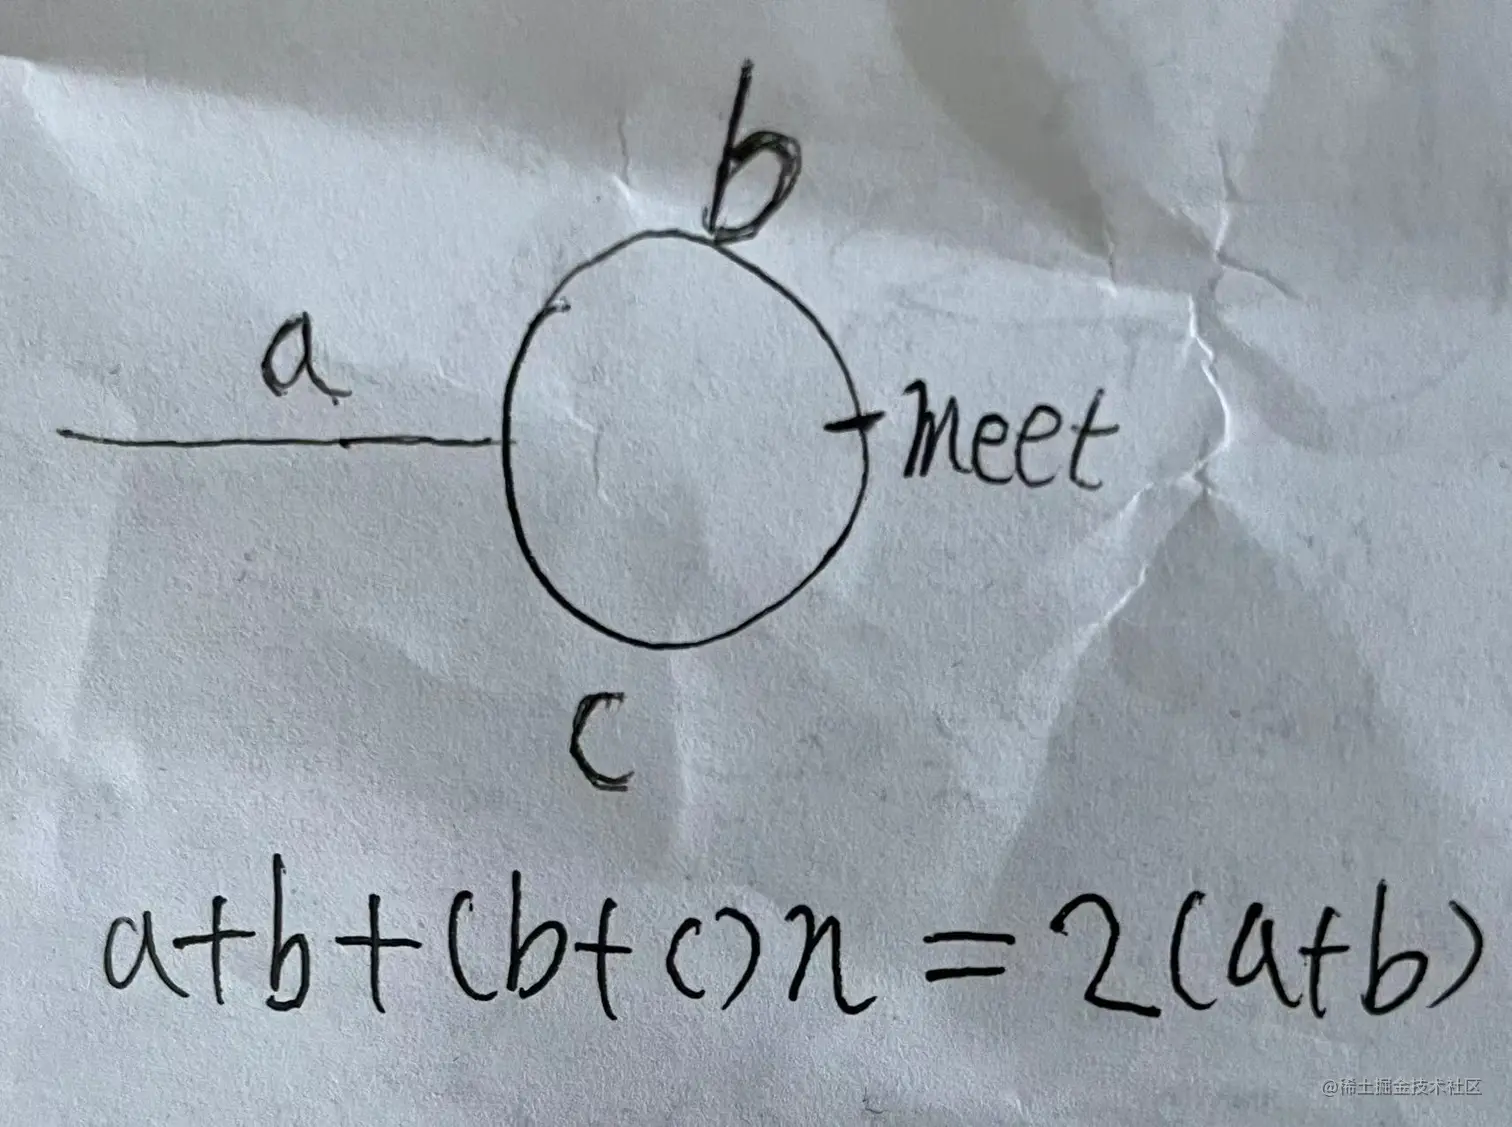 b
a
meet
c
a+b+(b+c)n=2(a+b)
@稀土掘金技术社区